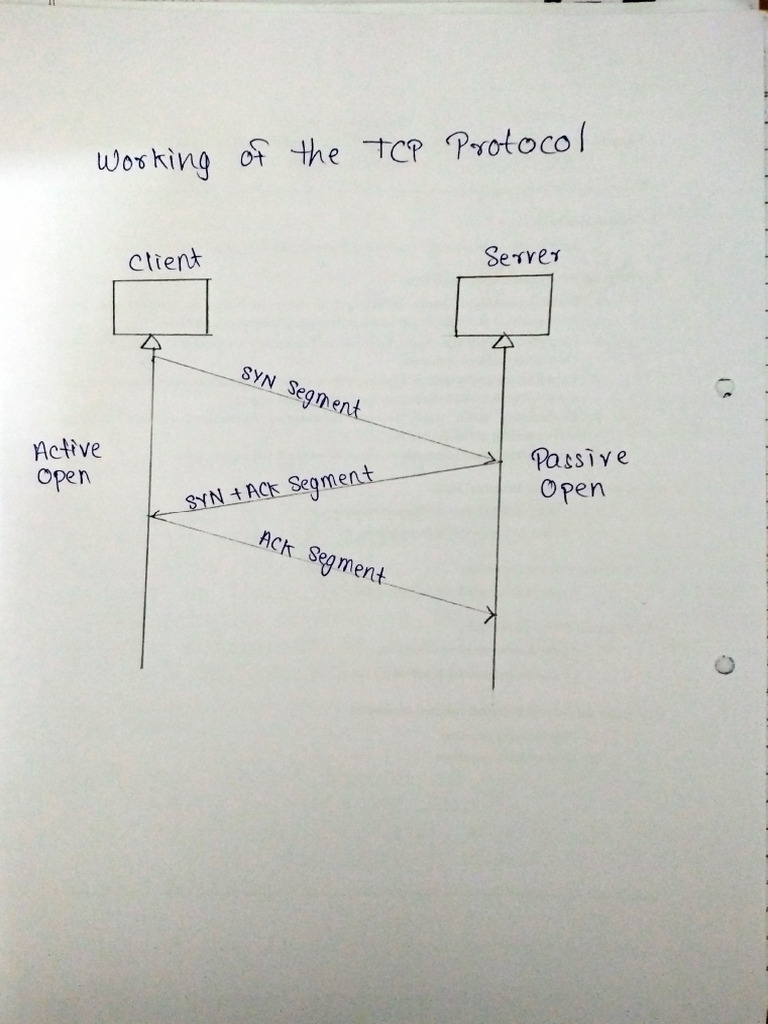 Working of the TCP Protocol
Client
Server
SYN Segment
Active
Open
Passive
Open
SYN + ACK Segment
ACK Segment